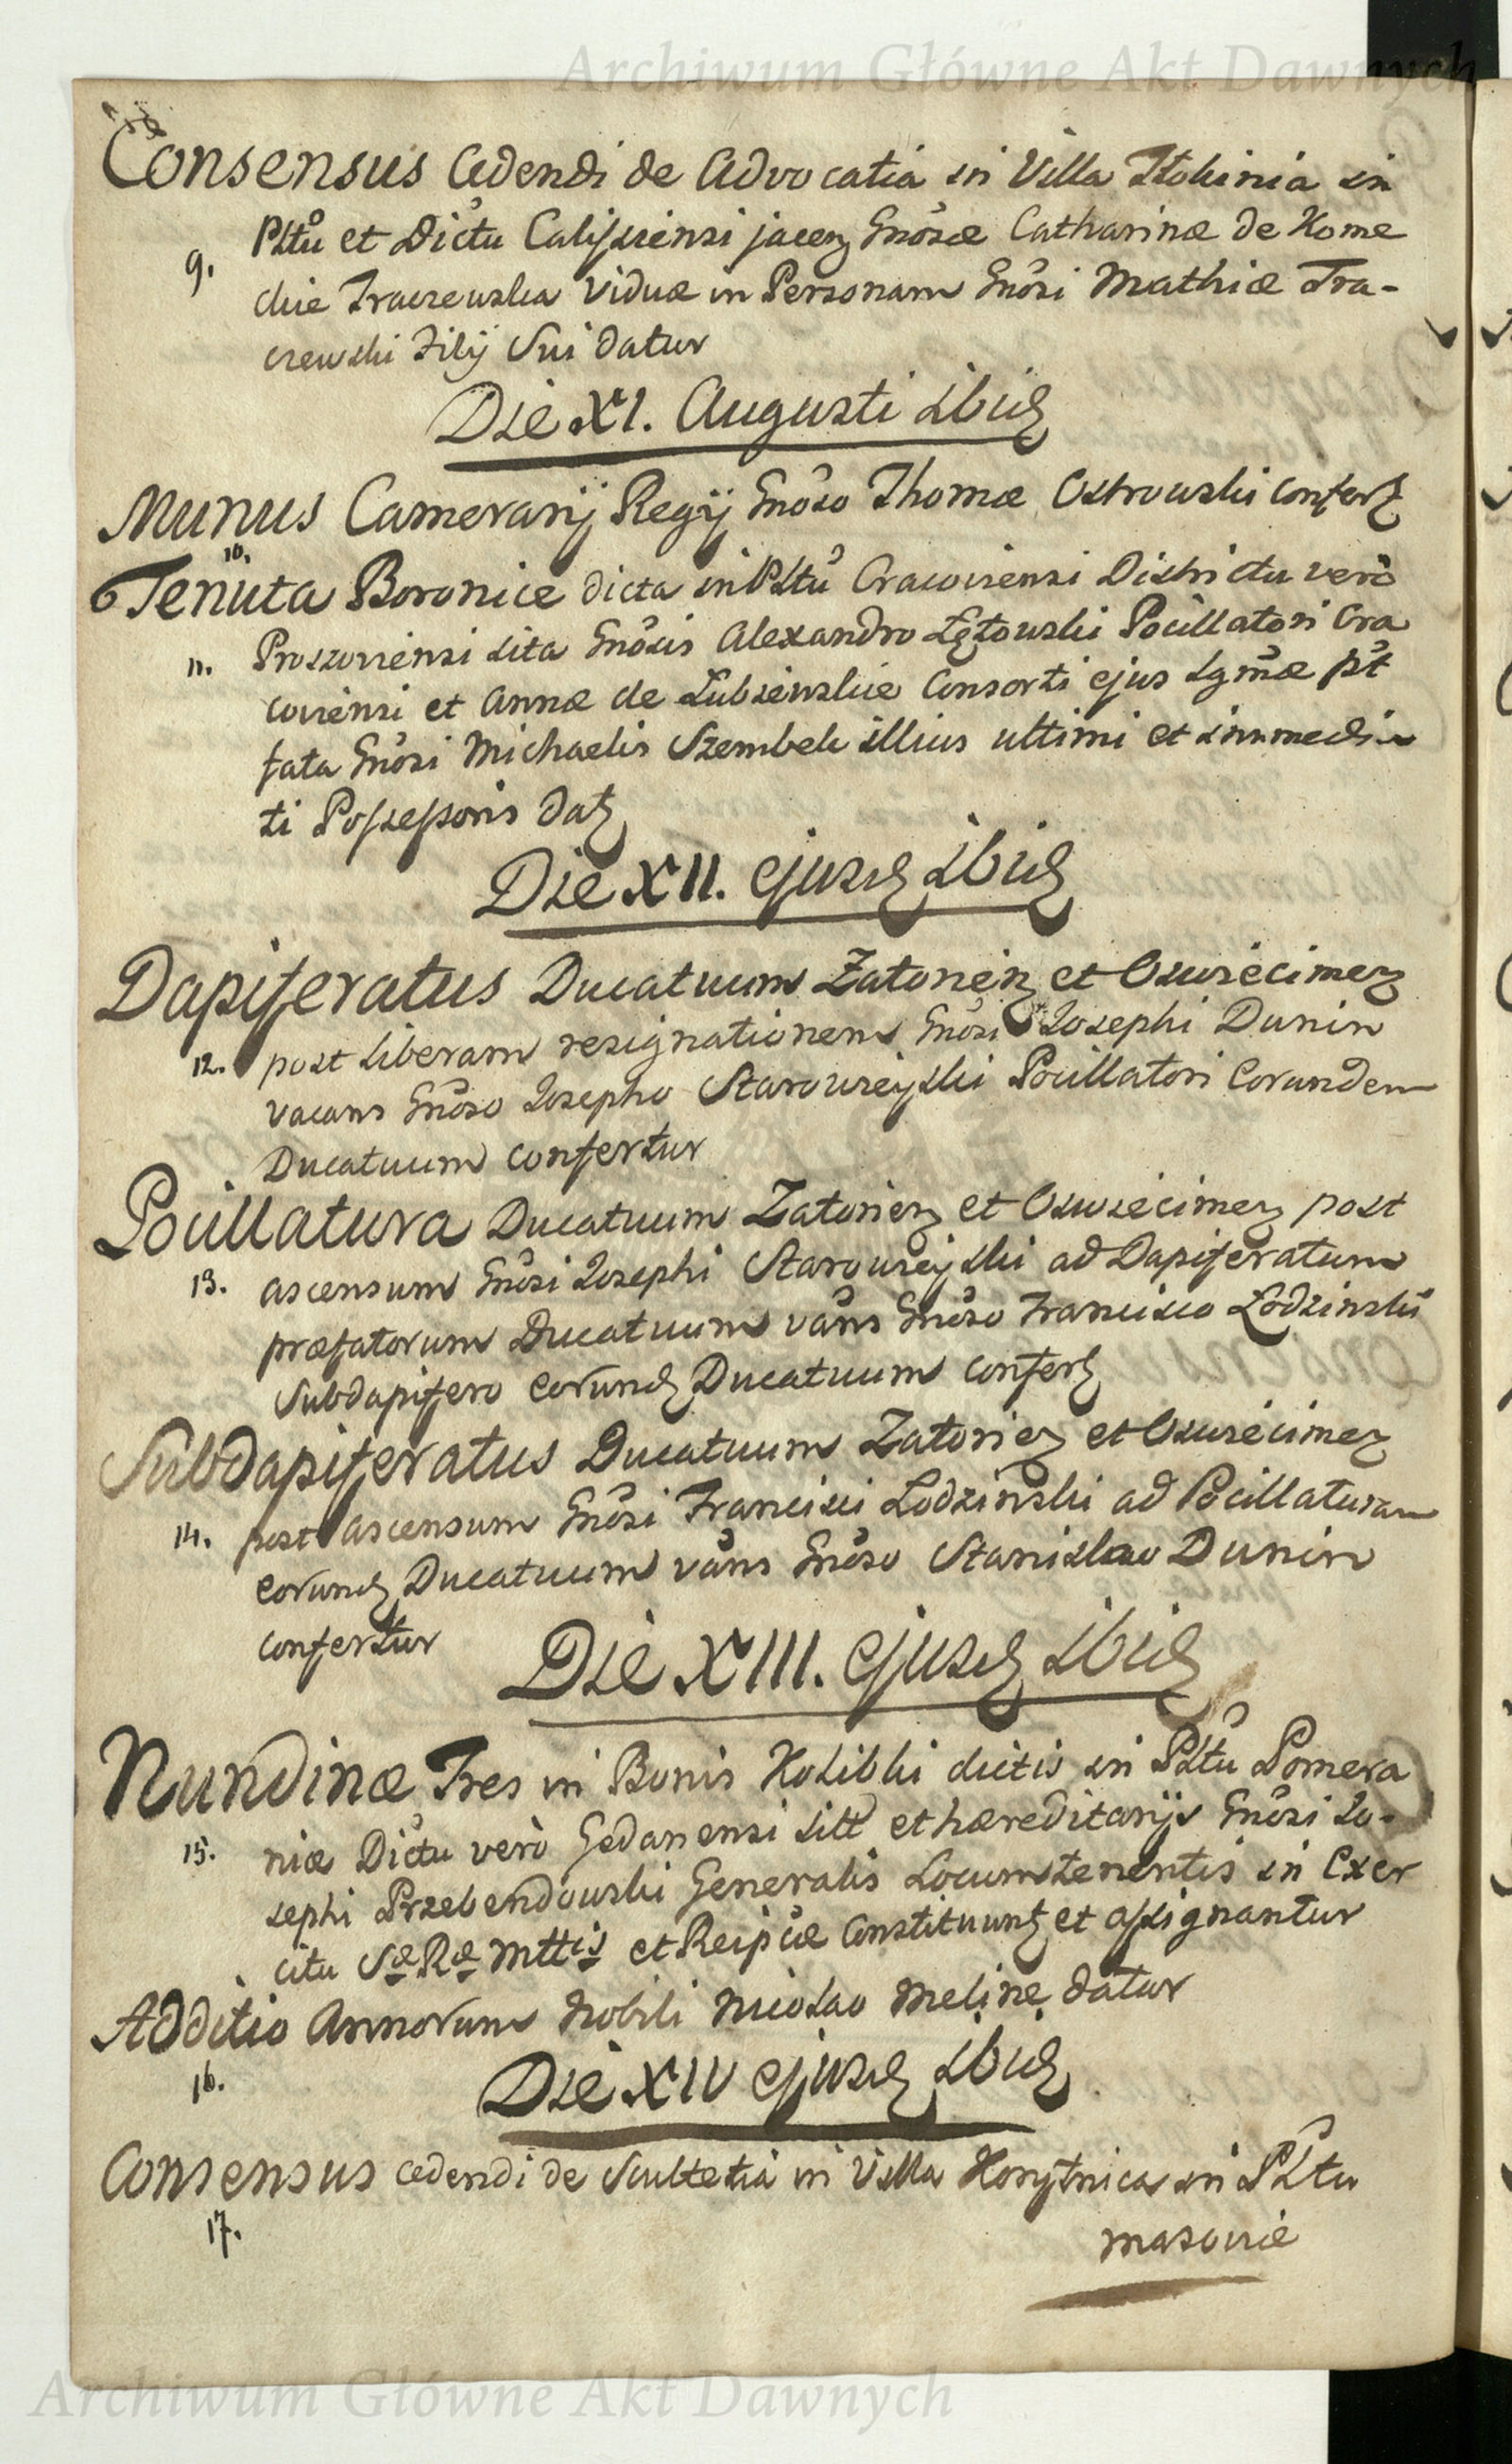 Archiwum Główne Akt Dawnych
Consensus Cedendi de Advocatia in Villa Stobinia in
9. Pltu et Dictu Calissiensi jacen Gnosæ Catharinæ de Kome
ckie Traczewska Viduæ in Personam Gnosi Mathiæ Tra-
czewski Filij Sui datur
Die XI. Augusti ibid
Munus Camerarij Regij Gnoso Thomæ Ostrowski confert
10.
Tenuta Boronice dicta in Pltu Cracoviensi Districtu verò
11. Proszoviensi sita Gnosis Alexandro Łętowski Pocillatori Cra
coviensi et Annæ de Łubieńskie Consorti ejus Lgmæ pst
fata Gnosi Michaelis Szembek illius ultimi et immedia
ti Possessoris dat
Die XII. ejusd ibid
Dapiferatus Ducatuum Zatorien et Oswiecimen
12. post liberam resignationem Gnosi Josephi Dunin
vacans Gnoso Josepho Starowieyski Pocillatori Eorundem
Ducatuum confertur
Pocillatura Ducatuum Zatorien et Oswiecimen post
13. ascensum Gnosi Josephi Starowieyski ad Dapiferatum
præfatorum Ducatuum vans Gnoso Francisco Łodzinski
Subdapifero eorund Ducatuum confert
Subdapiferatus Ducatuum Zatorien et Oswiecimen
14. post ascensum Gnosi Francisci Łodzinski ad Pocillaturam
eorund Ducatuum vans Gnoso Stanislao Dunin
confertur
Die XIII. ejusd ibid
Nundinæ Tres in Bonis Kolibki dictis in Pltu Pomera
15. niæ Dictu verò Gedanensi sitt et hæreditarijs Gnosi Jo-
sephi Przebendowski Generalis Locumtenentis in Exer
citu Sæ Ræ Mttis et Reipcæ Constituunt et assignantur
Additio Annorum Nobili Nicolao Meline datur
16.
Die XIV ejusd ibid
Consensus cedendi de Scultetia in Villa Konytnica in Pltu
17.
Masovie
Archiwum Główne Akt Dawnych